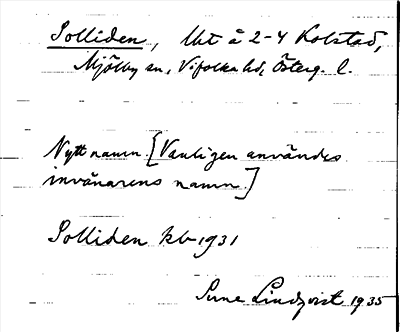 Solliden, lht å 2-4 Kolstad,
Mjölby sn, Vifolka hd, Österg. l.
Nytt namn [Vanligen användes
invånarens namn.]
Solliden kb 1931
Sune Lindqvist 1935